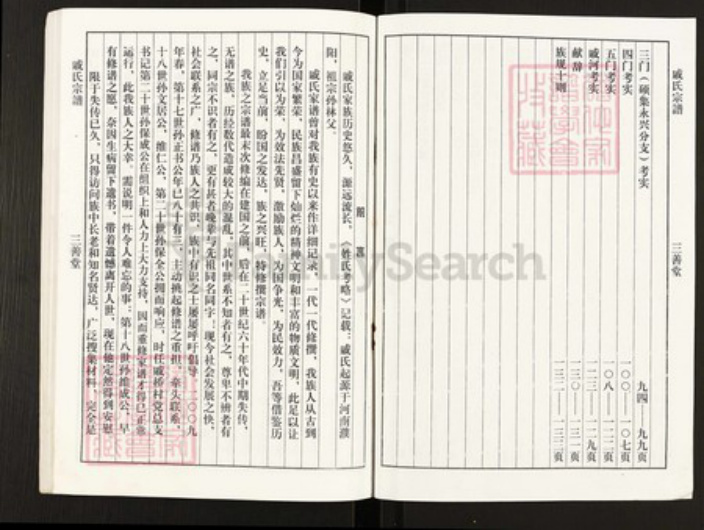 戚氏宗谱
三善堂
三门（硕集永兴分支）考实 九四——九九页
四门考实 一〇〇——一〇七页
五门考实 一〇八——一二二页
戚河考实 一二三——一二九页
献辞 一三〇——一三一页
族规十则 一三二——一三三页
戚氏家族历史悠久，源远流长。《姓氏考略》记载：戚氏起源于河南濮
阳，祖宗孙林父。
戚氏家谱曾对我族有史以来作详细记录，一代一代修撰，我族人从古到
今为国家繁荣、民族昌盛留下灿烂的精神文明和丰富的物质文明，此足以让
我们引以为荣。为效法先贤，激励族人，为国争光，为民效力，吾等借鉴历
史，立足当前，盼国之发达，族之兴旺，特修撰宗谱。
我族之宗谱最末次修编在建国之前，后在二十世纪六十年代中期失传，
无谱之族，历经数代造成较大的混乱，其中世系不知者有之，尊卑不辨者有
之，同宗不识者有之，更有甚者晚辈与先祖同名同字；现今社会发展之快，
社会联系之广，修谱乃族人之共识，族中有识之士屡屡呼吁倡导。二〇〇九
年春，第十七世孙正书公年已八十有三，主动挑起修谱之重担，牵头联系，
十八世孙文居公、维仁公，第二十世孙保全公拥而响应，时任戚桥村党总支
书记第二十世孙保成公在组织上和人力上大力支持，因而重修家谱才得已正常
运行，此我族人之大幸。需说明一件令人难忘的事：第十八世孙维成公，早
有修谱之愿，奈因生病留下遗书，带着遗憾离开人世，现在他定然得到安慰
限于失传已久，只得访问族中长老和知名贤达，广泛搜集材料，完全是
戚氏宗谱
三善堂
FamilySearch